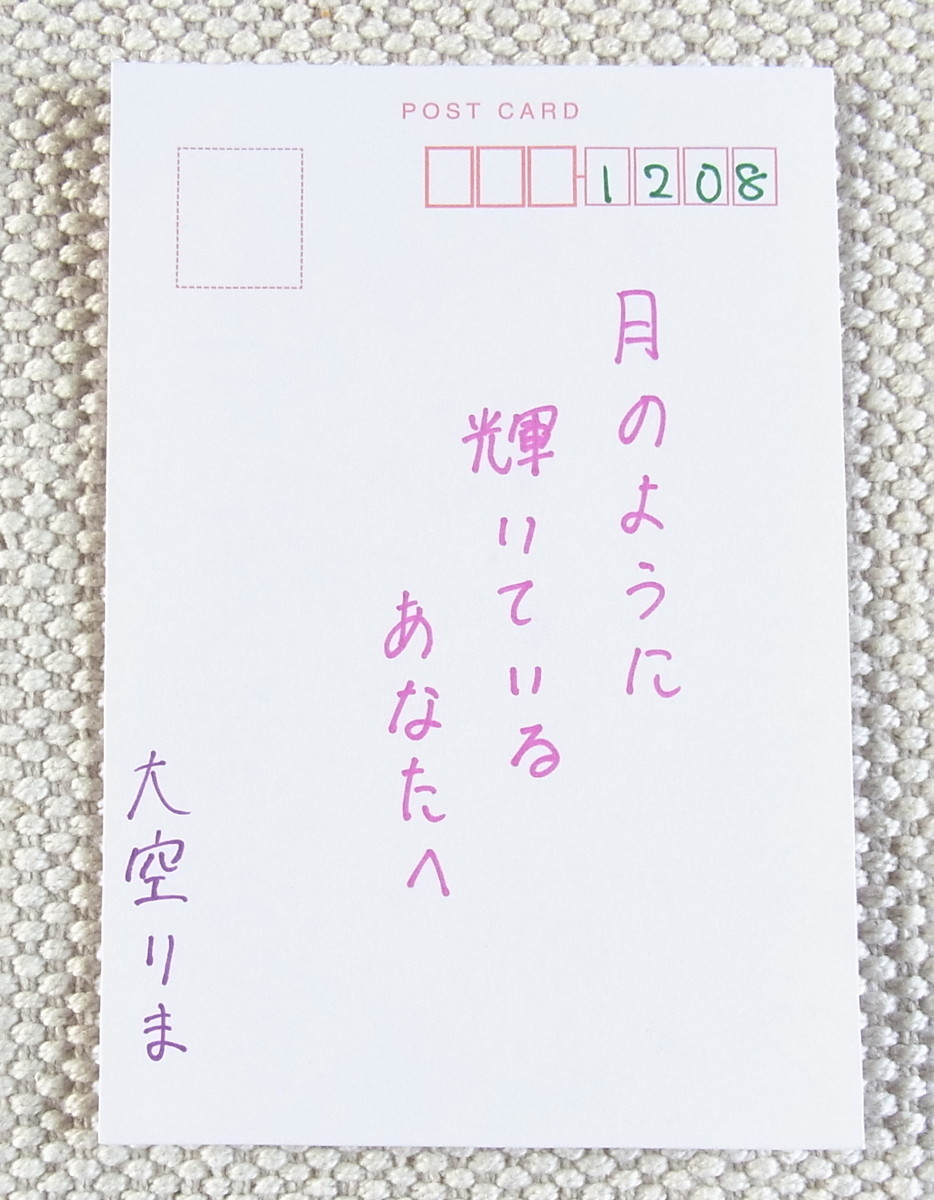 POST CARD
1208
月のように
輝いている
あなたへ
大空りま